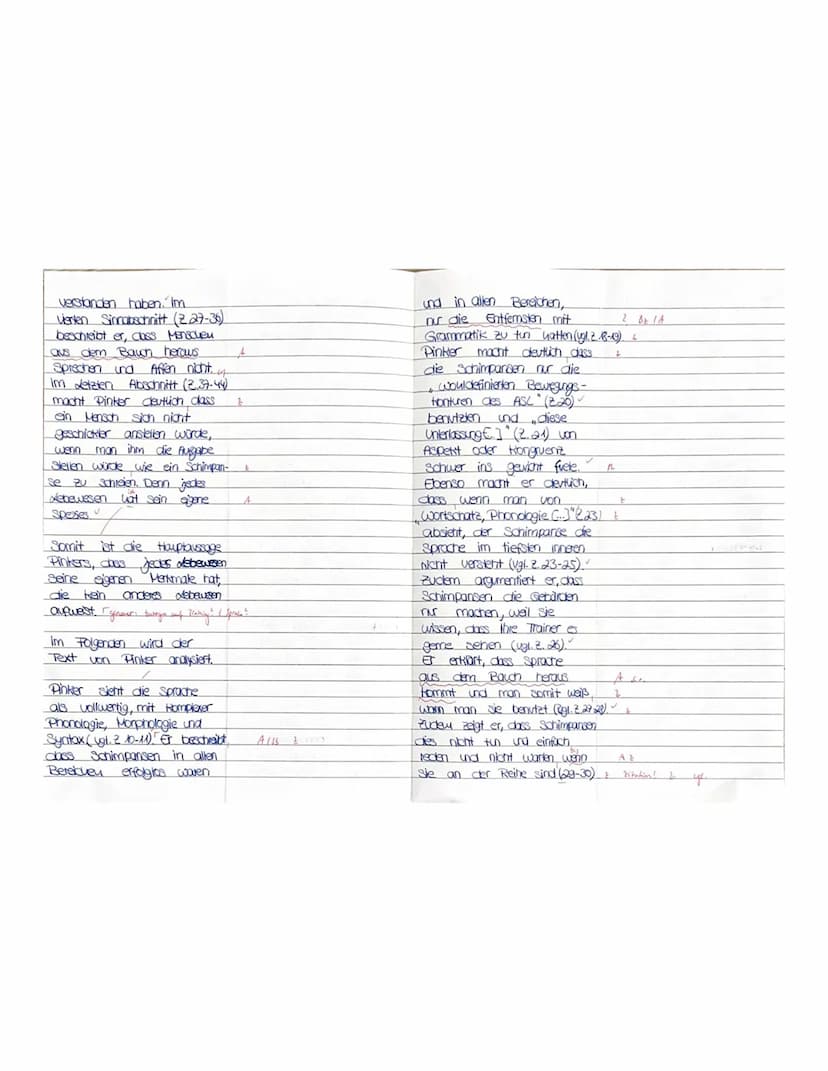 verstanden haben." Im
vierten Sinnabschnitt (Z.27-36)
beschreibt er, dass Menschen
aus dem Bauch heraus A
Sprechen und Affen nicht.
Im letzten Abschnitt (Z.37-44)
macht Pinker deutlich dass
ein Mensch sich nicht
geschickter anstellen würde,
wenn man ihm die Aufgabe
Stellen würde wie ein Schimpan-
se zu schreien. Denn jedes
Lebewesen hat sein eigene A
Spezies.
Somit ist die Hauptaussage
Pinkers, dass jedes Lebewesen
seine eigenen Merkmale hat,
die kein anderes Lebewesen
aufweist.
Im Folgenden wird der
Text von Pinker analysiert.
Pinker sieht die Sprache
als vollwertig, mit komplexer
Phonologie, Morphologie und
Syntax (vgl. Z 10-11). Er beschreibt,
dass Schimpansen in allen
Bereichen erfolglos waren
und in allen Bereichen,
nur die Entferntsten mit
Grammatik zu tun hatten (vgl. Z. 18-19)
Pinker macht deutlich dass
die Schimpansen nur die
„wohldefinierten Bewegungs-
konturen des ASL" (Z.20)
benutzten und „diese
Unterlassung[.]" (Z.21) von
Aspekt oder Kongruenz
Schwer ins gewicht fiele.
Ebenso macht er deutlich,
dass wenn man von
„Wortschatz, Phonologie [...]" (Z.23)
absieht, der Schimpanse die
Sprache im tiefsten inneren
nicht versteht (vgl. Z. 23-25).
Zudem argumentiert er, dass
Schimpansen die Gebärden
nur machen, weil sie
wissen, dass ihre Trainer es
gerne sehen (vgl. Z. 26).
Er erklärt, dass Sprache
aus dem Bauch heraus A
kommt und man somit weiß,
wann man sie benutzt (vgl. Z 27-28).
Zudem zeigt er, dass Schimpansen
dies nicht tun und einfach
reden und nicht warten wenn
sie an der Reihe sind (29-30).